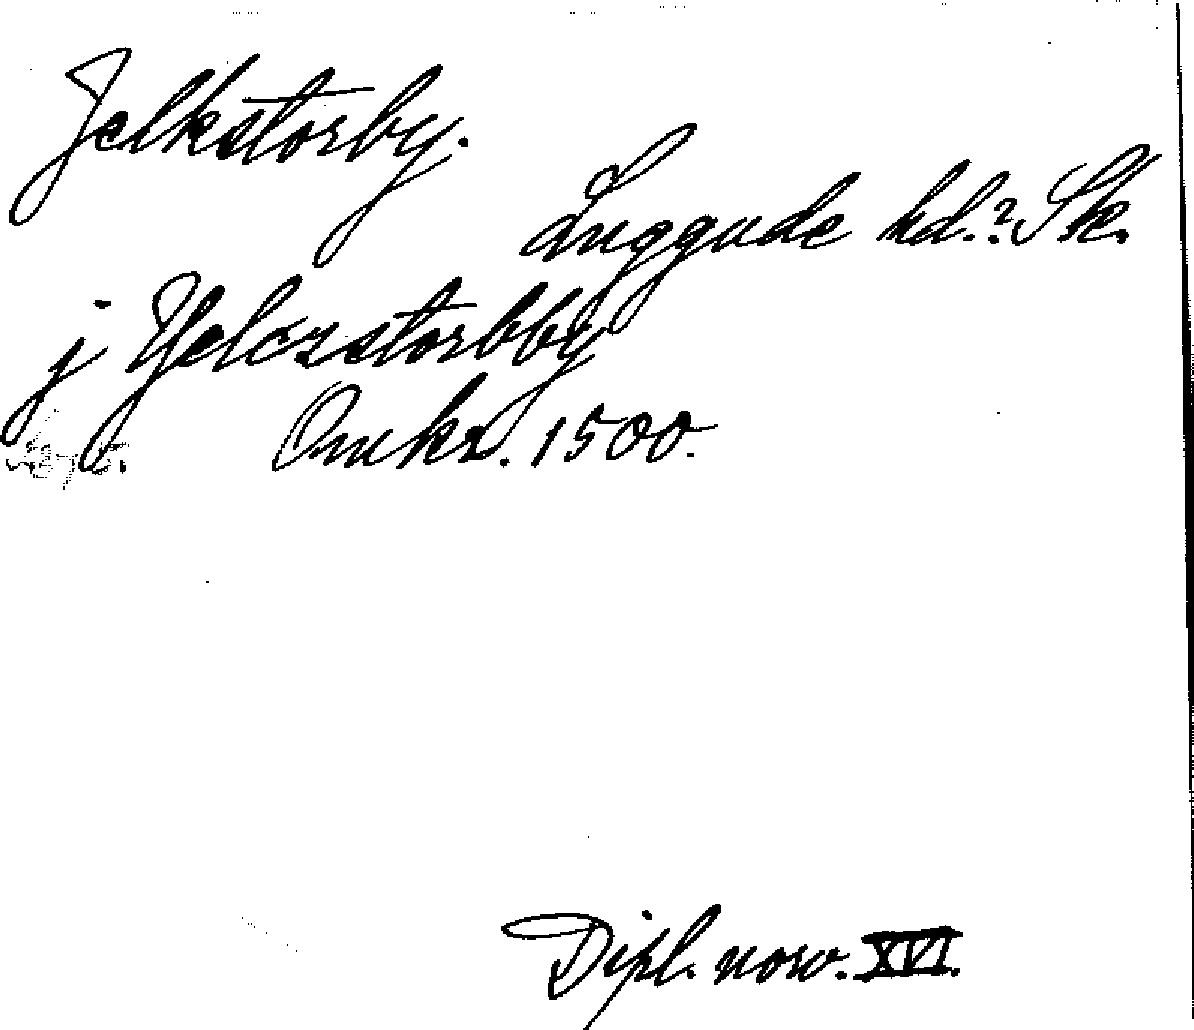 Jelkstorby.
Luggude hd.? Sk.
j Yelczstorbby
Omkr. 1500.
Dipl. norv. XVI.